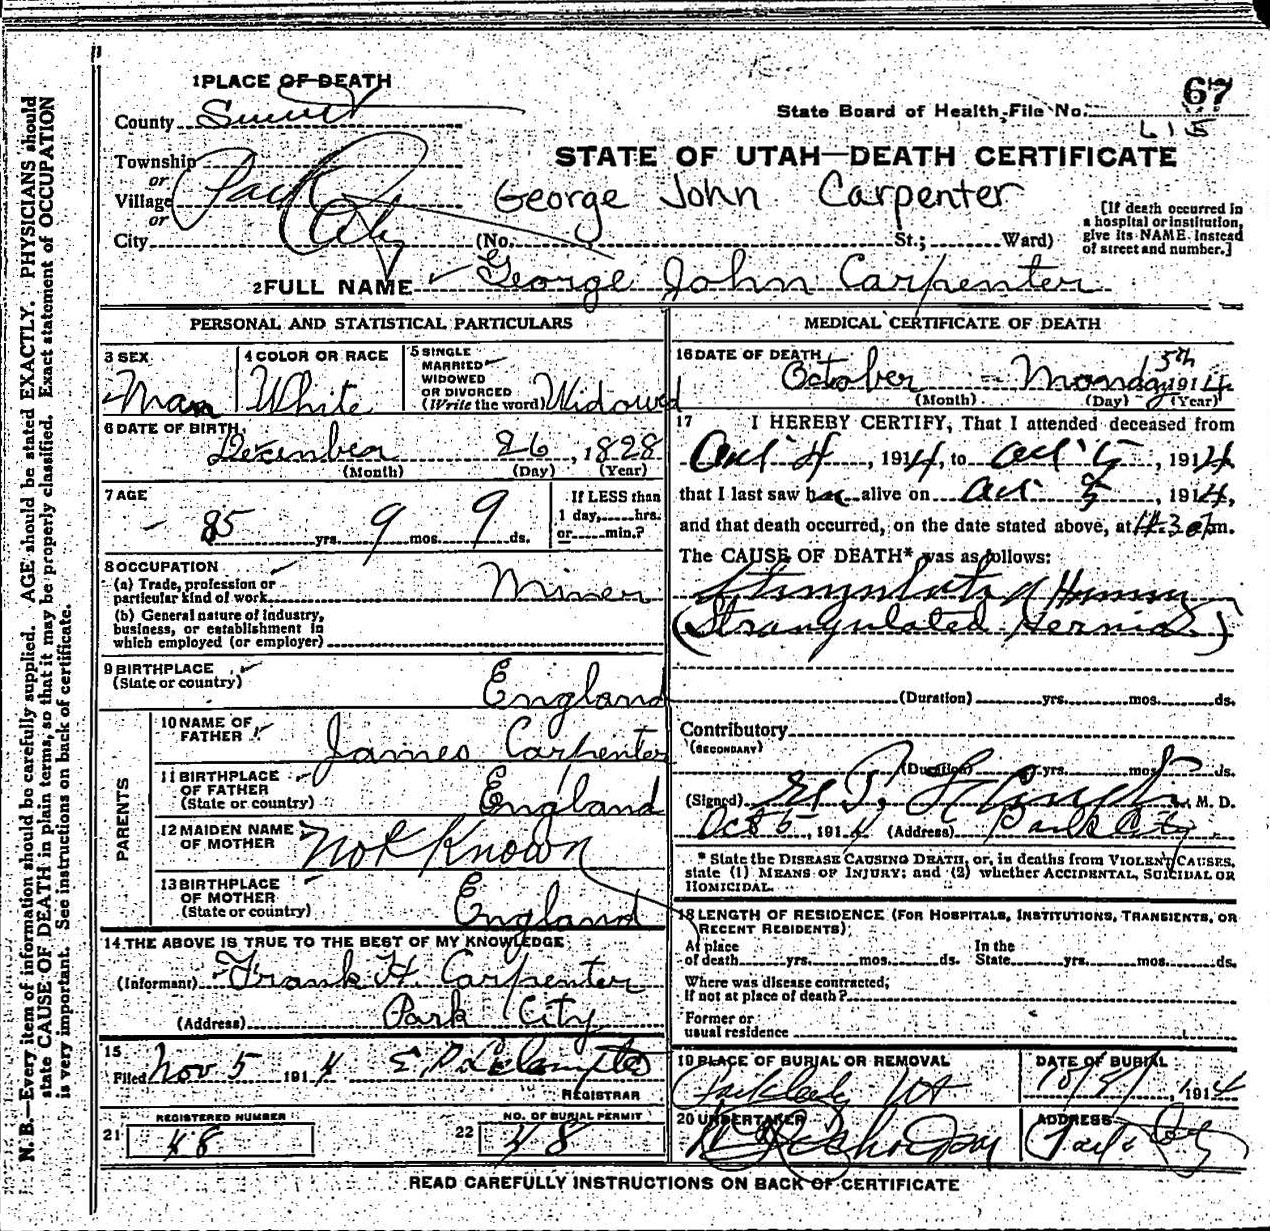 N. B.—Every item of information should be carefully supplied. AGE should be stated EXACTLY. PHYSICIANS should
state CAUSE OF DEATH in plain terms, so that it may be properly classified. Exact statement of OCCUPATION
is very important. See instructions on back of certificate.
1 PLACE OF DEATH
County Summit
Township
or
Village
or
City Park City
State Board of Health, File No. 67
STATE OF UTAH—DEATH CERTIFICATE
George John Carpenter
(No. St.; Ward)
[If death occurred in
a hospital or institution,
give its NAME instead
of street and number.]
2 FULL NAME George John Carpenter
PERSONAL AND STATISTICAL PARTICULARS
3 SEX
Man
4 COLOR OR RACE
White
5 SINGLE
MARRIED
WIDOWED
OR DIVORCED
(Write the word) Widowed
6 DATE OF BIRTH,
December 26, 1828
(Month) (Day) (Year)
7 AGE
85 yrs. 9 mos. 9 ds.
If LESS than
1 day, hrs.
or min.?
8 OCCUPATION
(a) Trade, profession or
particular kind of work Miner
(b) General nature of industry,
business, or establishment in
which employed (or employer)
9 BIRTHPLACE
(State or country)
England
PARENTS
10 NAME OF
FATHER
James Carpenter
11 BIRTHPLACE
OF FATHER
(State or country)
England
12 MAIDEN NAME
OF MOTHER
Not Known
13 BIRTHPLACE
OF MOTHER
(State or country)
England
14 THE ABOVE IS TRUE TO THE BEST OF MY KNOWLEDGE
(Informant) Frank H. Carpenter
(Address) Park City
15
Filed Nov 5 1914
REGISTRAR
REGISTERED NUMBER
21 48
NO. OF BURIAL PERMIT
22 48
MEDICAL CERTIFICATE OF DEATH
16 DATE OF DEATH
October - Monday 5th 1914
(Month) (Day) (Year)
17 I HEREBY CERTIFY, That I attended deceased from
Oct 4, 1914, to Oct 5, 1914
that I last saw h alive on Oct 5, 1914,
and that death occurred, on the date stated above, at 4:30 m.
The CAUSE OF DEATH* was as follows:
Strangulated Hernia
(Strangulated Hernia.)
(Duration) yrs. mos. ds.
Contributory
(SECONDARY)
(Duration) yrs. mos. ds.
(Signed) M. D.
Oct 5, 1914 (Address) Park City
* State the DISEASE CAUSING DEATH, or, in deaths from VIOLENT CAUSES,
state (1) MEANS OF INJURY; and (2) whether ACCIDENTAL, SUICIDAL OR
HOMICIDAL.
18 LENGTH OF RESIDENCE (FOR HOSPITALS, INSTITUTIONS, TRANSIENTS, OR
RECENT RESIDENTS)
At place
of death yrs. mos. ds.
In the
State yrs. mos. ds.
Where was disease contracted,
if not at place of death?
Former or
usual residence
19 PLACE OF BURIAL OR REMOVAL
Park City Ut
DATE OF BURIAL
, 1914
20 UNDERTAKER
ADDRESS
Park City
READ CAREFULLY INSTRUCTIONS ON BACK OF CERTIFICATE